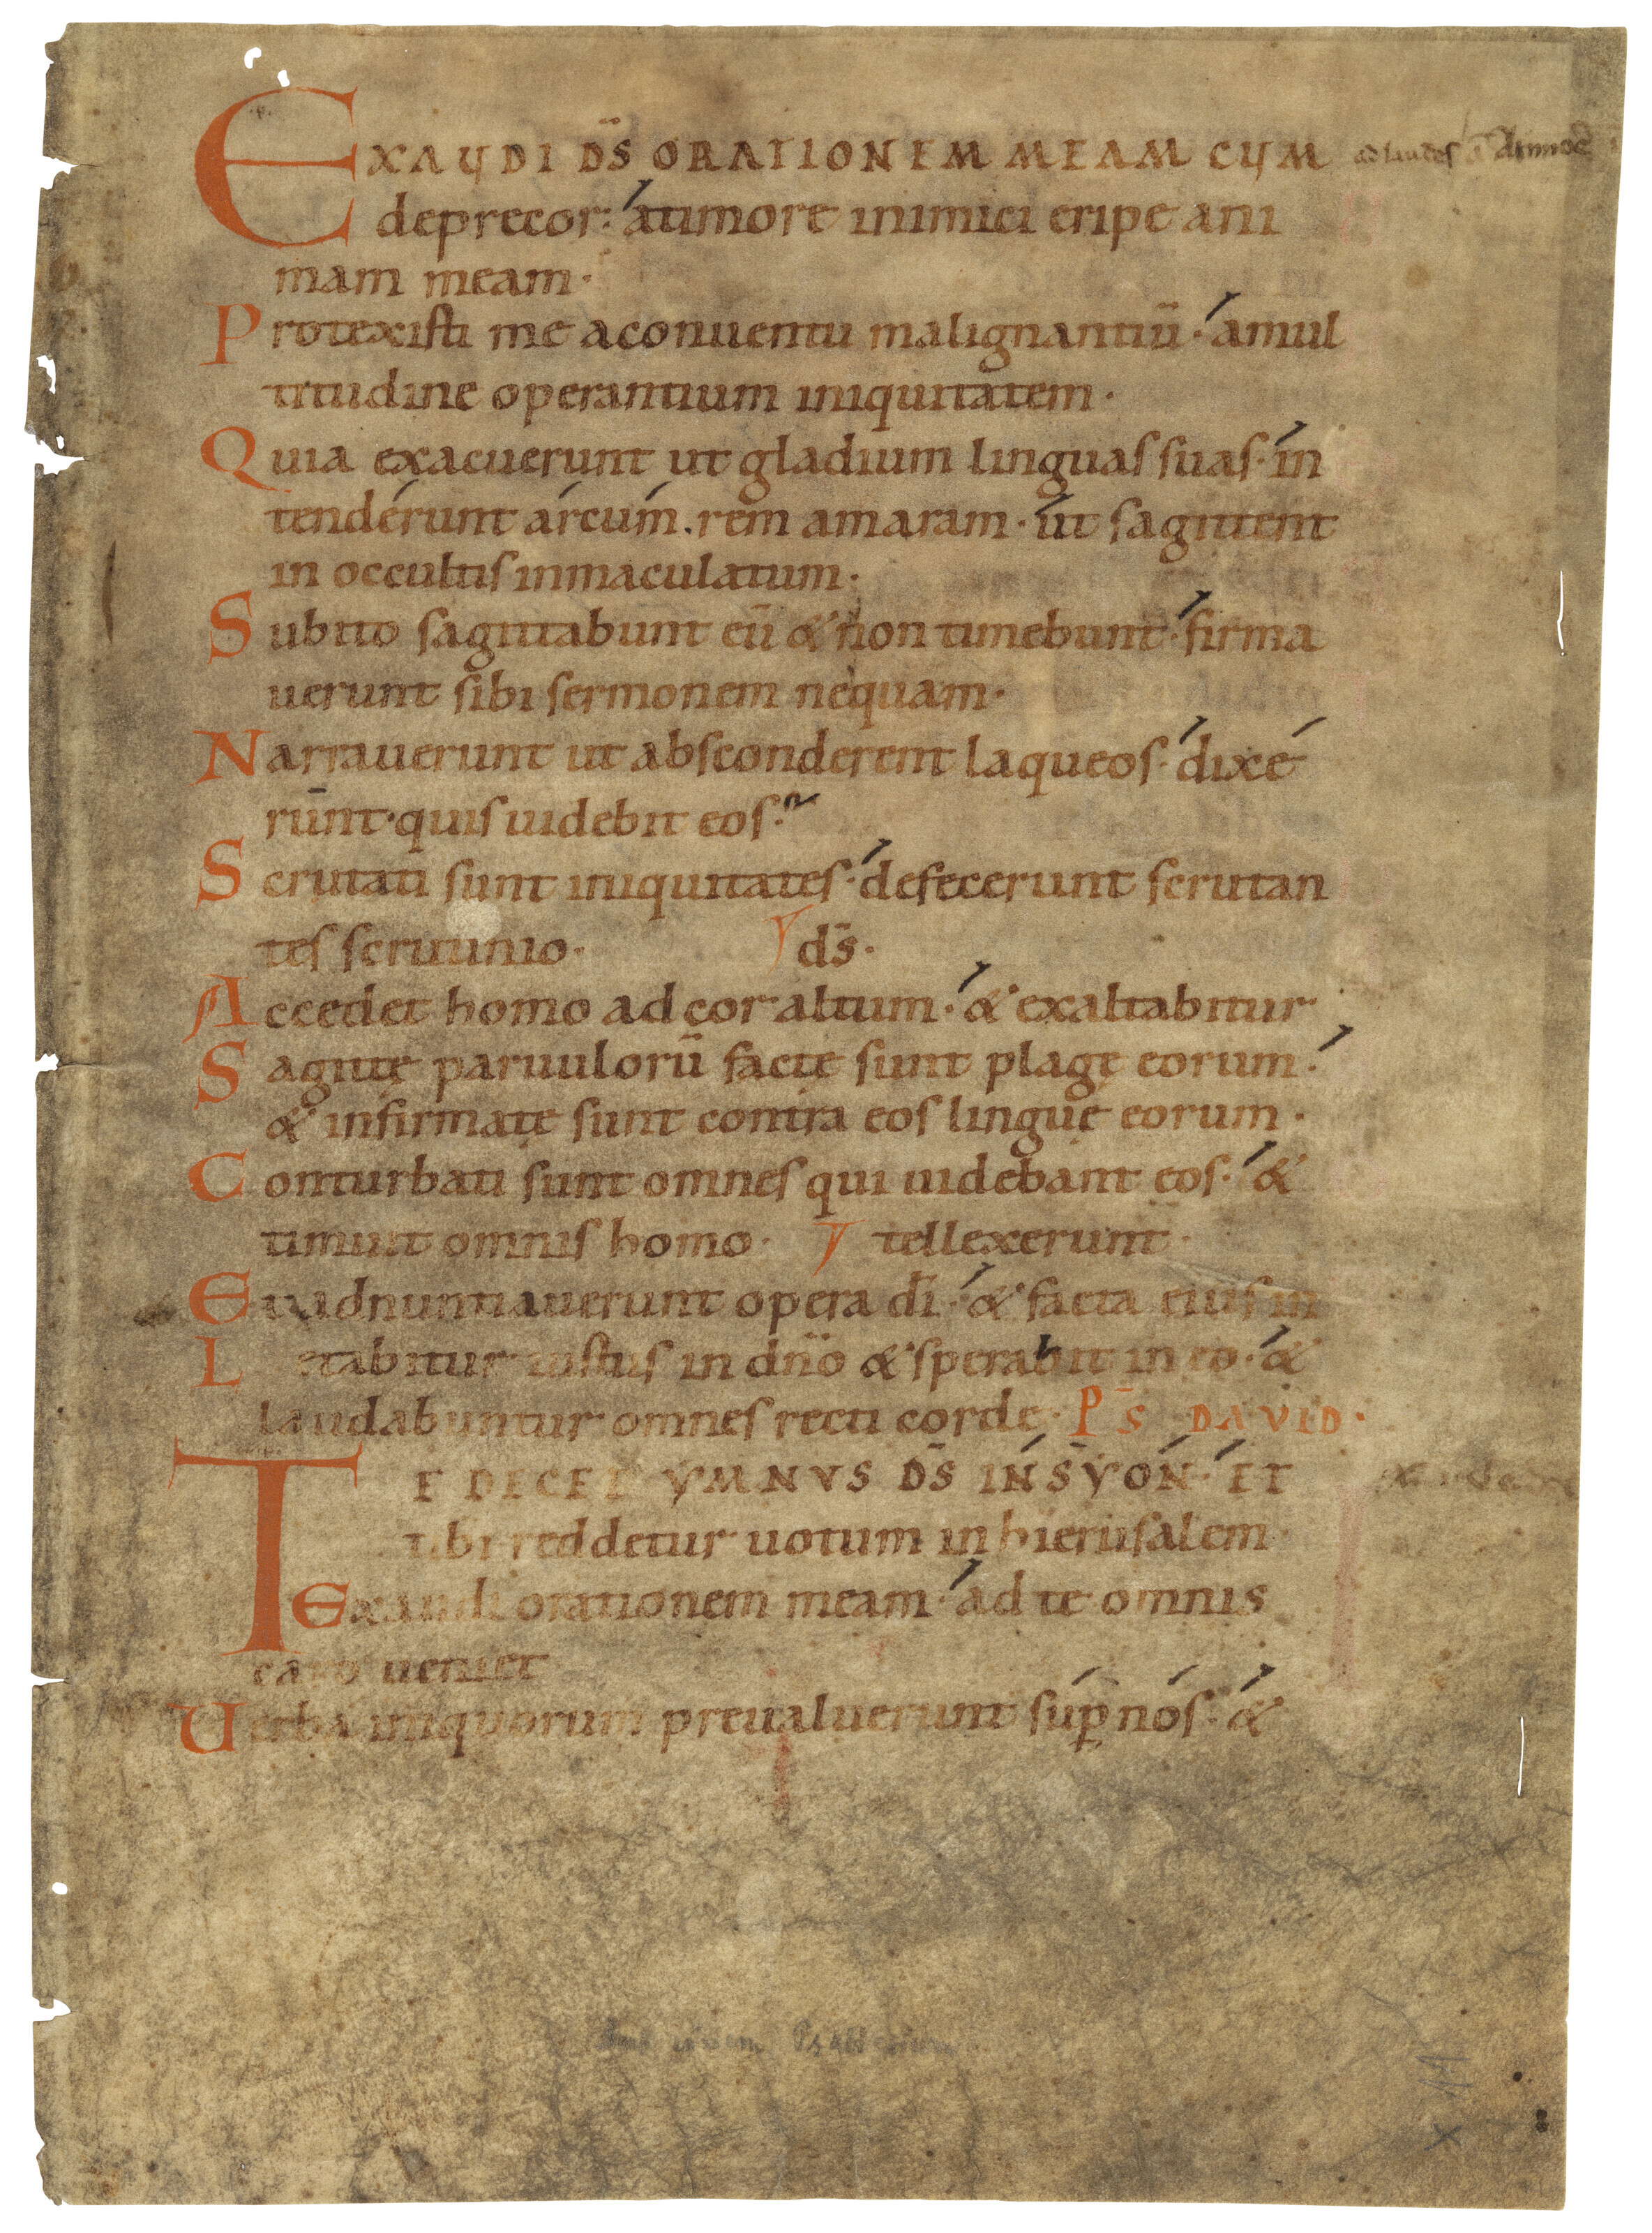 EXAUDI D̄S ORATIONEM MEAM CUM ad laudes
deprecor: a timore inimici eripe ani
mam meam.
Protexisti me a conuentu malignantiū. a mul
titudine operantium iniquitatem.
Quia exacuerunt ut gladium linguas suas. in
tendérunt árcúm. rem amaram. út sagittent
in occultis inmaculatum.
Subito sagittabunt eū & non timebunt. firma
uerunt sibi sermonem nequam.
Narrauerunt ut absconderent laqueos. dixé
rūnt. quis uidebit eos.
Scrutati sunt iniquitates. defecerunt scrutan
tes scrutinio. d̄s.
Accedet homo ad cor altum. & exaltabitur
Sagittę paruulorū factę sunt plagę eorum.
& infirmatę sunt contra eos linguę eorum.
Conturbati sunt omnes qui uidebant eos. &
timuit omnis homo. tellexerunt.
Et adnuntiauerunt opera d̄i. & facta eius in
Lętabitur iustus in dn̄o & sperabit in eo. &
laudabuntur omnes recti corde. P̄S DAVID.
TE DECET YMNVS D̄S IŃ SYÓN. ET
tibi reddetur uotum in hierusalem
Exaudi orationem meam. ad te omnis
caro ueniet
Uerba iniquorum preualuerunt súp̱ nós. &